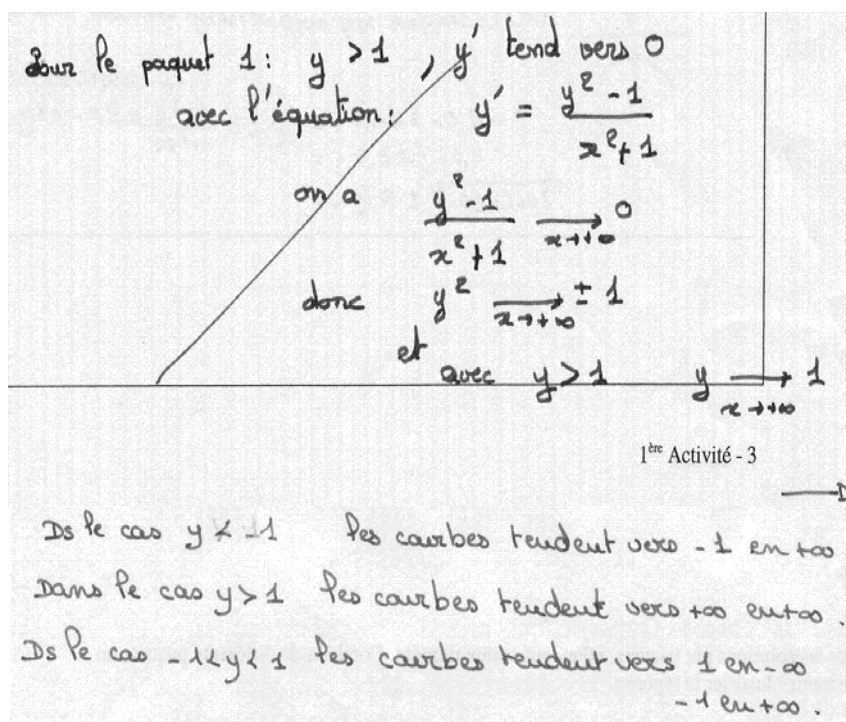 Pour le paquet 1 : y > 1 , y' tend vers 0
avec l'équation : y' = (y² - 1)/(x² + 1)
on a (y² - 1)/(x² + 1) → 0 x→+∞
donc y² → ± 1 x→+∞
et
avec y > 1 y → 1 x→+∞
1ère Activité - 3
Ds le cas y < -1 les courbes tendent vers -1 en +∞
Dans le cas y > 1 les courbes tendent vers +∞ en +∞.
Ds le cas -1<y<1 les courbes tendent vers 1 en -∞
-1 en +∞.